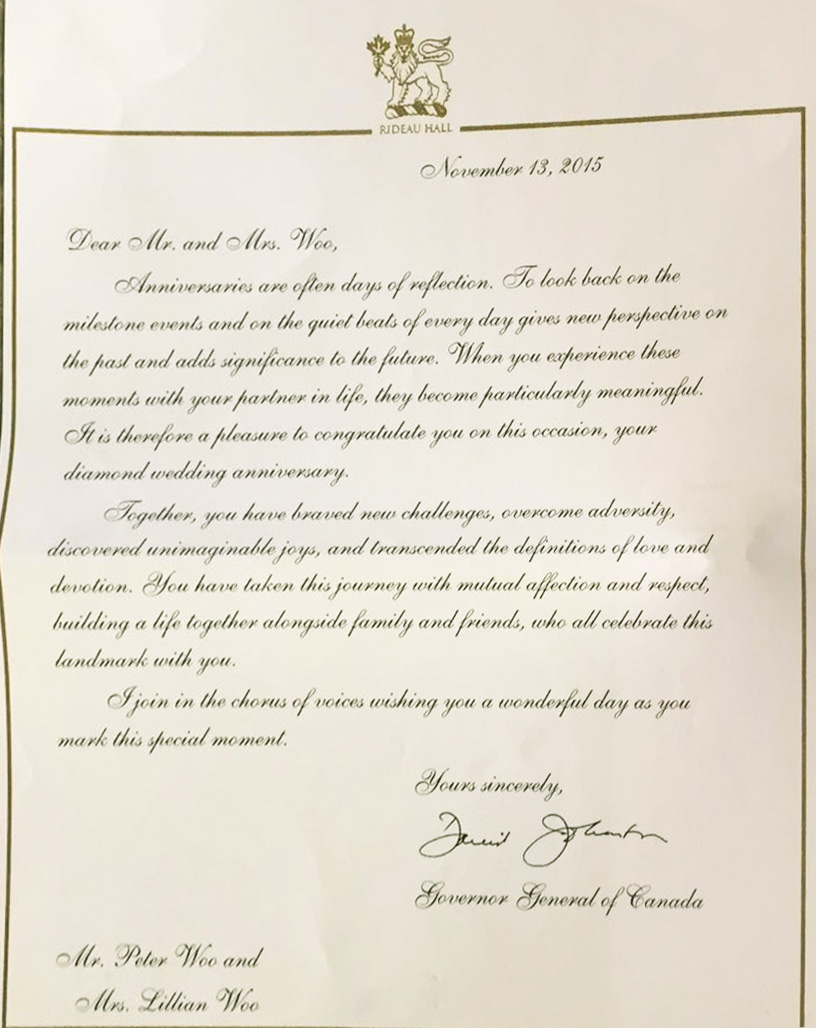 RIDEAU HALL
November 13, 2015
Dear Mr. and Mrs. Woo,
Anniversaries are often days of reflection. To look back on the
milestone events and on the quiet beats of every day gives new perspective on
the past and adds significance to the future. When you experience these
moments with your partner in life, they become particularly meaningful.
It is therefore a pleasure to congratulate you on this occasion, your
diamond wedding anniversary.
Together, you have braved new challenges, overcome adversity,
discovered unimaginable joys, and transcended the definitions of love and
devotion. You have taken this journey with mutual affection and respect,
building a life together alongside family and friends, who all celebrate this
landmark with you.
I join in the chorus of voices wishing you a wonderful day as you
mark this special moment.
Yours sincerely,
David Johnston
Governor General of Canada
Mr. Peter Woo and
Mrs. Lillian Woo